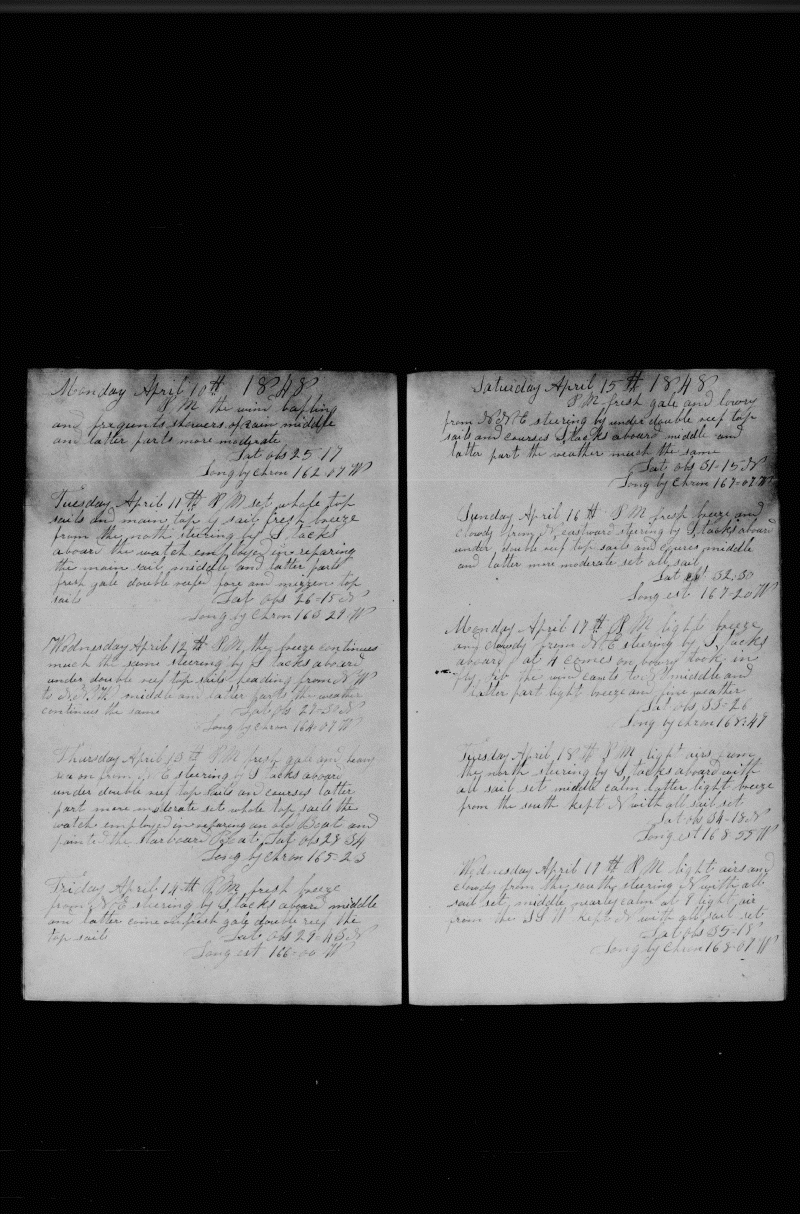 Monday April 10th 1848
P M the win bafling
and frequents showers of rain middle
and latter parts more moderate
Lat obs 25-17
Long by Chron 162-07 W
Tuesday April 11th P M set whole top
sails and main top g sail fresh breeze
from the north steering by S tacks
aboard the watch employed in reparing
the main sail middle and latter part
fresh gale double reefed fore and mizzen top
sails Lat obs 26-15 N
Long by Chron 163-29 W
Wednesday April 12th P M, they breeze continues
much the same steering by S tacks aboard
under double reef top sails heading from N W
to middle and latter parts the weather
continues the same Lat obs 27-37 N
Long by Chron 164-07 W
Thursday April 13th P M fresh gale and heavy
sea on from E steering by S tacks aboard
under double reef top sails and courses latter
part more moderate set whole top sails the
watch employed in reparing an old Boat and
painted the starboard Boat, Lat obs 28 34
Long by Chron 165-23
Friday April 14th P M fresh breeze
from N E steering by S tacks aboard middle
and latter come on fresh gale double reef the
top sails Lat obs 29-43 N
Long est 166-00 W
Saturday April 15th 1848
P M fresh gale and lowry
from N N E steering by under double reef top
sails and courses S tacks aboard middle and
latter part the weather much the same
Lat obs 31-15 N
Long by Chron 167-07 W
Sunday April 16th P M fresh breeze and
cloudy from N, eastward steering by S, tacks aboard
under, double reef top sails and courses middle
and latter more moderate set all sail
Lat est 32-30
Long est 167-20 W
Monday April 17th P M light breeze
and cloudy from N E steering by S, tacks
aboard at 4 comes on took in
the wind cants to middle and
latter part light breeze and fine weather
Lat obs 33-26
Long by Chron 168-47
Tuesday April 18th P M light airs from
they north steering by S, tacks aboard with
all sail set middle calm latter light breeze
from the south kept N with all sail set
Lat ob 34-18 N
Long est 168-55 W
Wednesday April 19th P M light airs and
cloudy from they south, steering N with all
sail set, middle nearly calm at 8 light air
from the S S W kept N with all sail set
Lat obs 35-18
Long by Chron 168-07 W